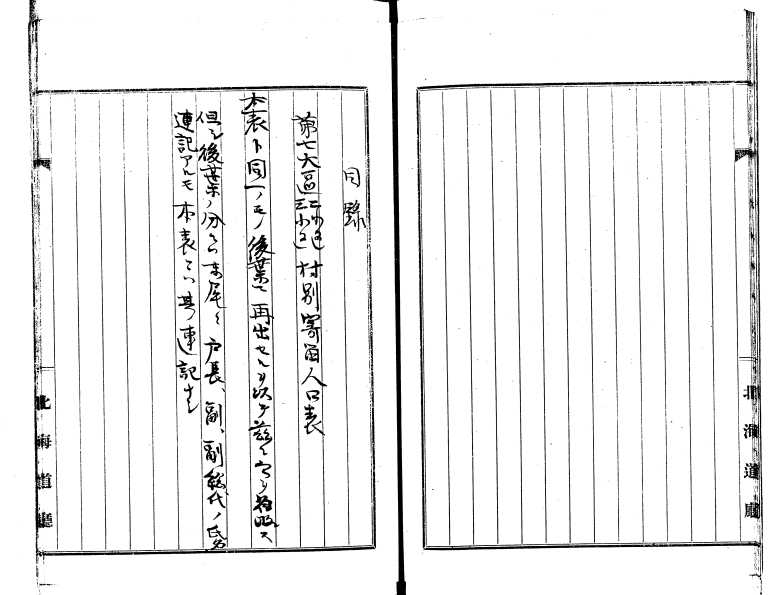 北海道廳
目錄
第七大區二小區三小區村別寄留人口表
本表ト同一ノモノ後葉ニ再出セルヲ以テ茲ニ寫ヲ省略ス
但シ後葉ノ分ニハ末尾ニ戸長、副、副総代ノ氏名
連記アルモ本表ニハ其連記ナシ
北海道廳